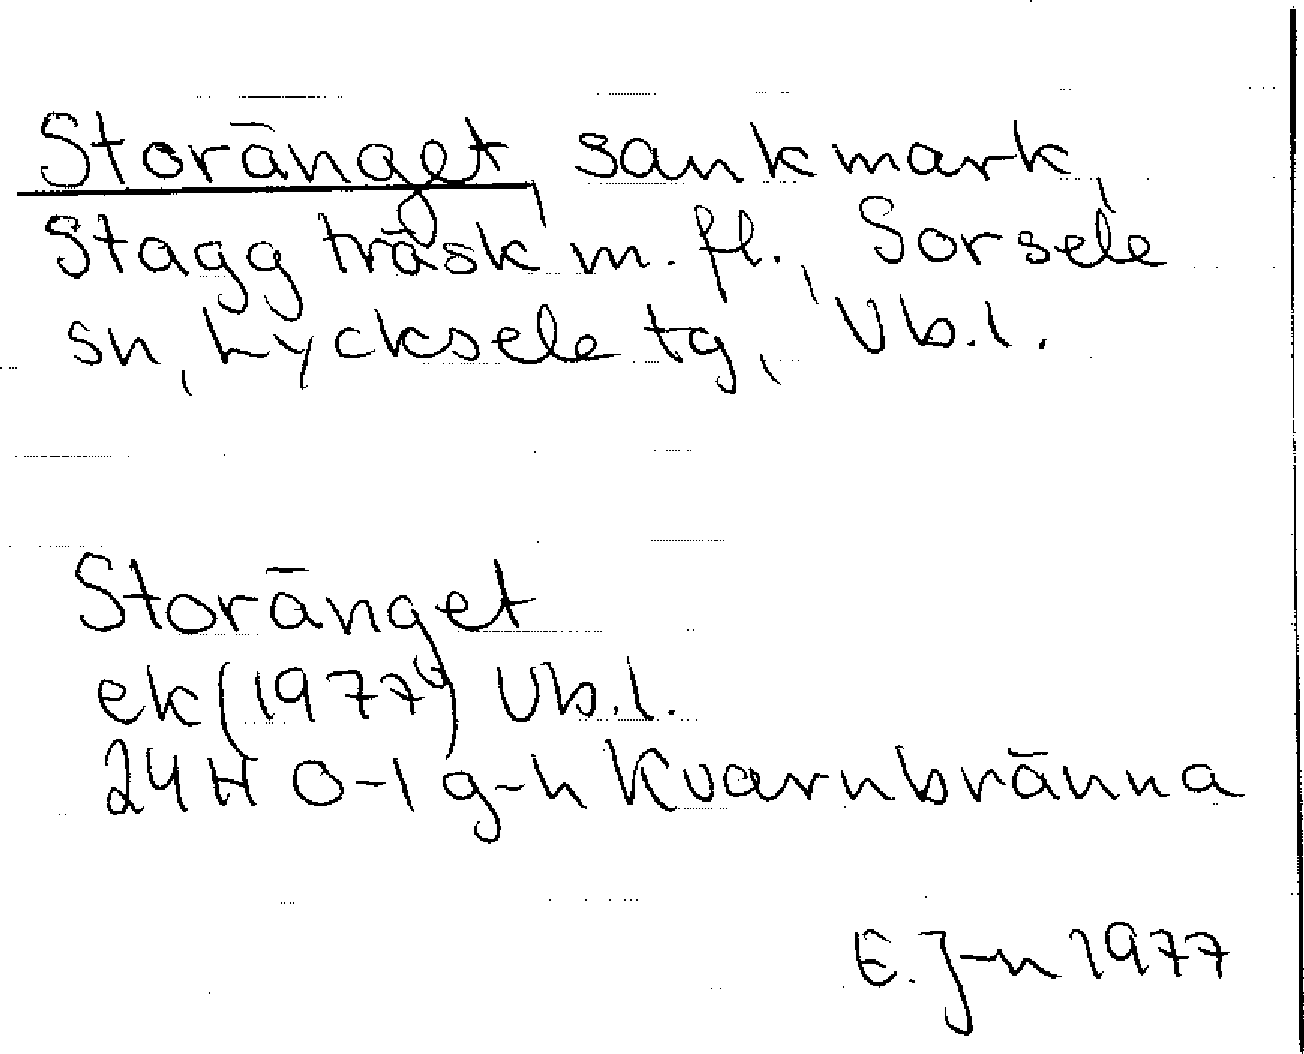 Storänget, sankmark,
Staggträsk m. fl., Sorsele
sn, Lycksele tg, Vb.l.
Storänget
ek (1977) Vb.l.
24H 0-1 g-h Kvarnbränna
E. J-n 1977